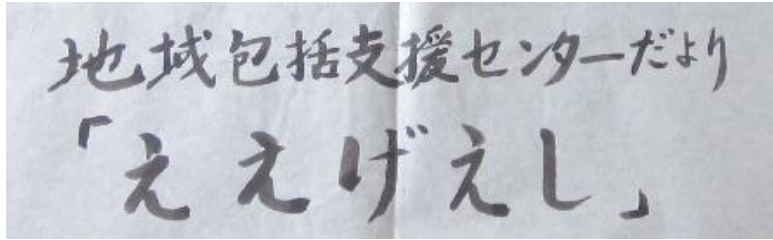 地域包括支援センターだより
「ええげえし」